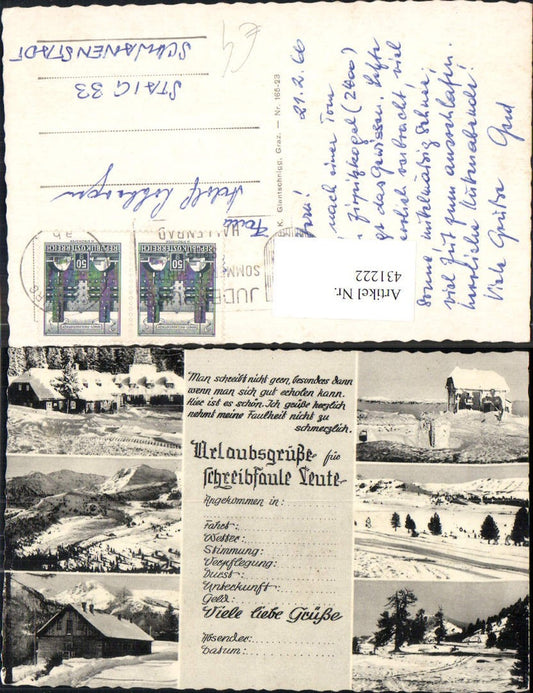 SCHWANENSTADT
STAIG 33
Adolf
Fam.
K. Glantschnigg, Graz. — Nr. 165-23
21.2.66
nach einer Tour
Zirbitzkogel (2400)
das Gewissen.
verbracht, viel
Sonne mittelmäßig Schnee,
viel Zeit zum ausschlafen.
herzliche
Viele Grüße Gerd
HALLENBAD
SOMM
JUDEN
REPUBLIK ÖSTERREICH
50
REPUBLIK ÖSTERREICH
50
Artikel Nr.
431222
Man schreibt nicht gern, besonders dann
wenn man sich gut erholen kann.
Hier ist es schön. Ich grüße herzlich
nehmt meine Faulheit nicht zu
schmerzlich.
Urlaubsgrüße für
schreibfaule Leute
Angekommen in:
Fahrt:
Wetter:
Stimmung:
Verpflegung:
Durst:
Unterkunft:
Geld:
Viele liebe Grüße
Absender:
Datum: